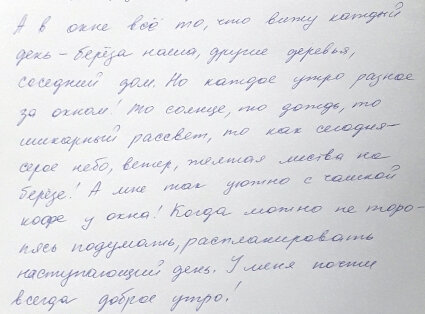 А в окне всё то, что вижу каждый
день - берёза наша, другие деревья,
соседний дом. Но каждое утро разное
за окном! То солнце, то дождь, то
шикарный рассвет, то как сегодня -
серое небо, ветер, жёлтая листва на
берёзе! А мне так уютно с чашкой
кофе у окна! Когда можно не торо-
пясь подумать, распланировать
наступающий день. У меня почти
всегда доброе утро!